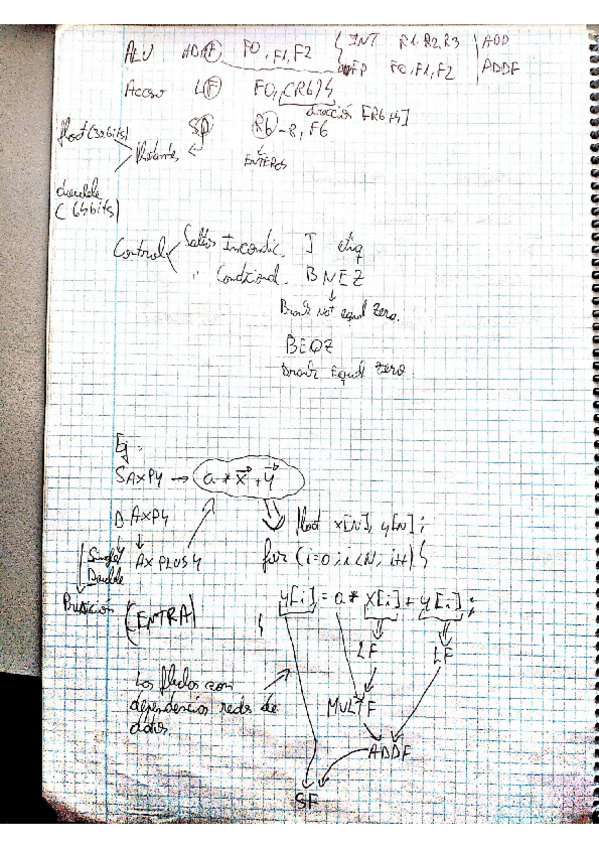 ALU ADDF F0, F1, F2 { INT R1, R2, R3 | ADD
FP F0, F1, F2 | ADDF
Acceso LF F0, (R6)
dirección [R6
float (32 bits)
SD R6 - R, F6
flotantes
ENTEROS
double
(64 bits)
Control Saltos Incondic. J etiq
" Condicional. BNEZ
Branch not equal Zero.
BEQZ
Branch Equal Zero
Ej:
SAXPY → a * x + y
DAXPY
float x[N], y[N];
Single AX PLUS Y
Double
for (i=0; i<N, i++) {
Precisión (ENTRA)
y[i] = a * x[i] + y[i];
}
LF LF
Las flechas son
dependencias reales de
datos.
MULTF
ADDF
SF